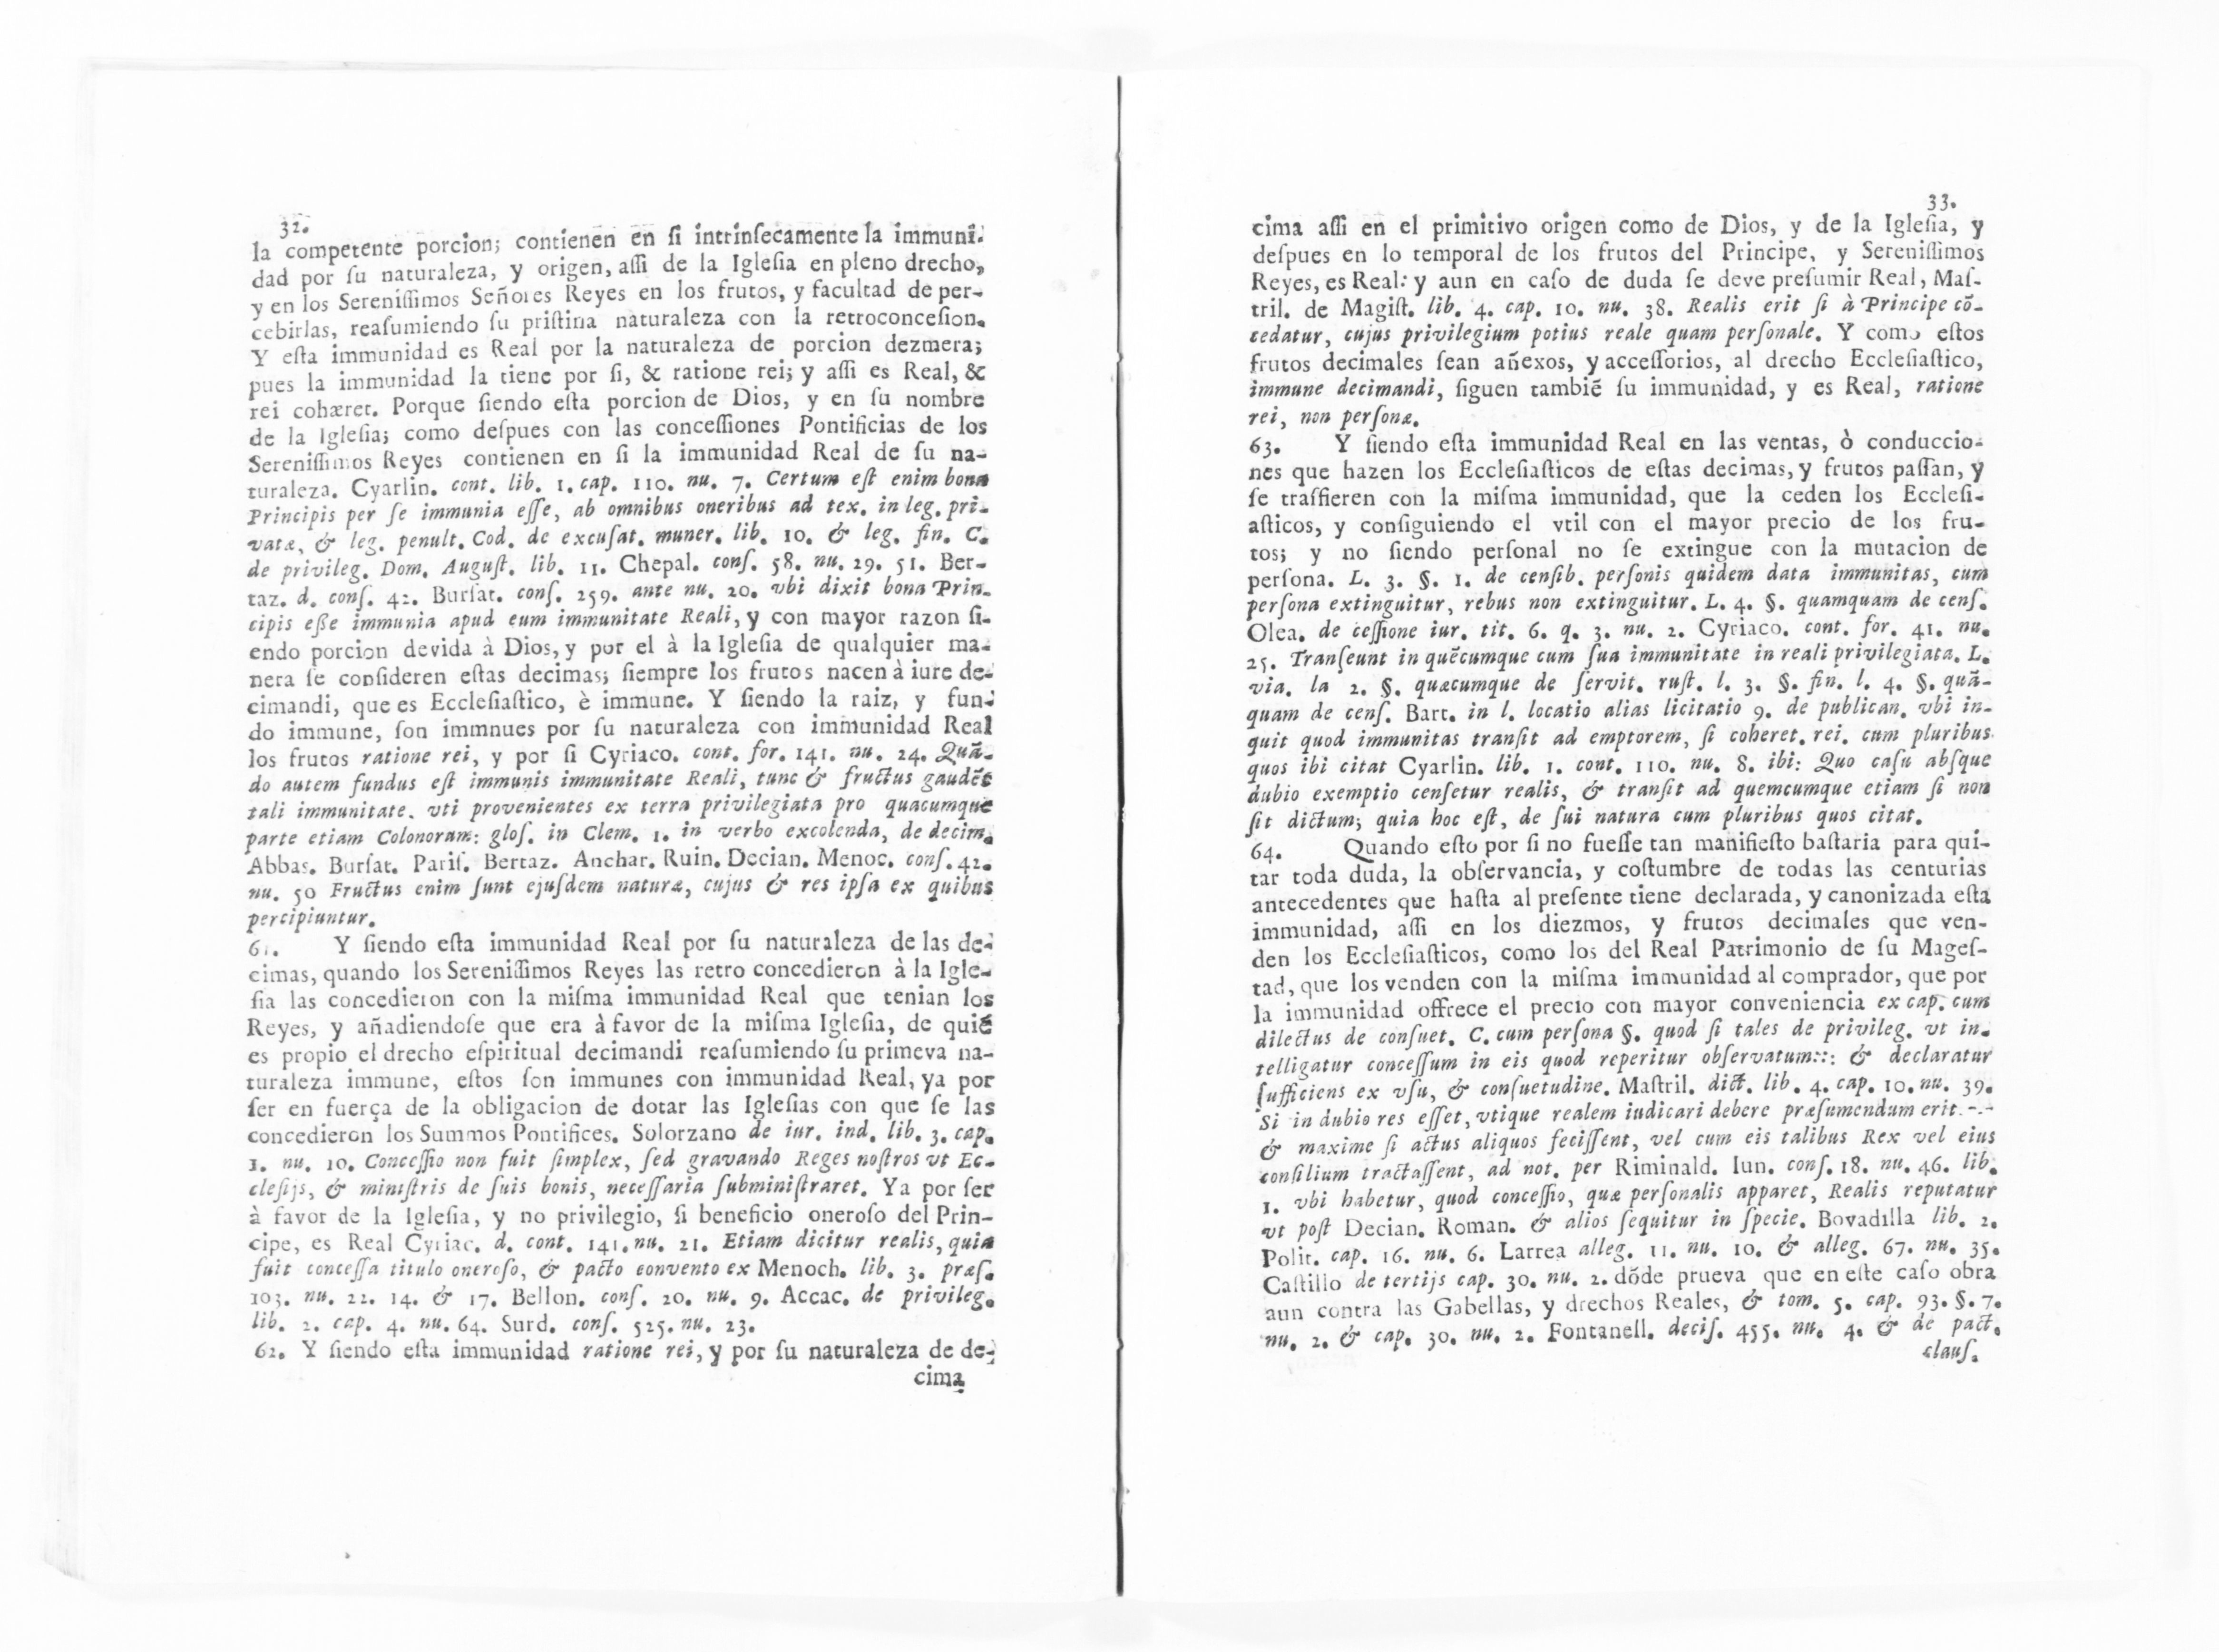 32.
la competente porcion; contienen en ſi intrinſecamente la immuni-
dad por ſu naturaleza, y origen, aſſi de la Igleſia en pleno drecho,
y en los Sereniſſimos Señores Reyes en los frutos, y facultad de per-
cebirlas, reaſumiendo ſu priſtina naturaleza con la retroconceſion.
Y eſta immunidad es Real por la naturaleza de porcion dezmera;
pues la immunidad la tiene por ſi, & ratione rei; y aſſi es Real, &
rei cohæret. Porque ſiendo eſta porcion de Dios, y en ſu nombre
de la Igleſia; como deſpues con las conceſſiones Pontificias de los
Sereniſſimos Reyes contienen en ſi la immunidad Real de ſu na-
turaleza. Cyarlin. cont. lib. 1. cap. 110. nu. 7. Certum eſt enim bona
Principis per ſe immunia eſſe, ab omnibus oneribus ad tex. in leg. pri-
vatæ, & leg. penult. Cod. de excuſat. muner. lib. 10. & leg. fin. C.
de privileg. Dom. Auguſt. lib. 11. Chepal. conſ. 58. nu. 29. 51. Ber-
taz. d. conſ. 42. Burſat. conſ. 259. ante nu. 20. vbi dixit bona Prin-
cipis eße immunia apud eum immunitate Reali, y con mayor razon ſi-
endo porcion devida à Dios, y por el à la Igleſia de qualquier ma-
nera ſe conſideren eſtas decimas; ſiempre los frutos nacen à iure de-
cimandi, que es Eccleſiaſtico, è immune. Y ſiendo la raiz, y fun-
do immune, ſon immnues por ſu naturaleza con immunidad Real
los frutos ratione rei, y por ſi Cyriaco. cont. for. 141. nu. 24. Quã-
do autem fundus eſt immunis immunitate Reali, tunc & fructus gaudẽt
tali immunitate. vti provenientes ex terra privilegiata pro quacumque
parte etiam Colonoram: gloſ. in Clem. 1. in verbo excolenda, de decim.
Abbas. Burſat. Pariſ. Bertaz. Anchar. Ruin. Decian. Menoc. conſ. 42.
nu. 50 Fructus enim ſunt ejuſdem naturæ, cujus & res ipſa ex quibus
percipiuntur.
61. Y ſiendo eſta immunidad Real por ſu naturaleza de las de-
cimas, quando los Sereniſſimos Reyes las retro concedieron à la Igle-
ſia las concedieron con la miſma immunidad Real que tenian los
Reyes, y añadiendoſe que era à favor de la miſma Igleſia, de quiẽ
es propio el drecho eſpiritual decimandi reaſumiendo ſu primeva na-
turaleza immune, eſtos ſon immunes con immunidad Real, ya por
ſer en fuerça de la obligacion de dotar las Igleſias con que ſe las
concedieron los Summos Pontifices. Solorzano de iur. ind. lib. 3. cap.
1. nu. 10. Conceſſio non fuit ſimplex, ſed gravando Reges noſtros vt Ec-
cleſijs, & miniſtris de ſuis bonis, neceſſaria ſubminiſtraret. Ya por ſer
à favor de la Igleſia, y no privilegio, ſi beneficio oneroſo del Prin-
cipe, es Real Cyriac. d. cont. 141. nu. 21. Etiam dicitur realis, quia
fuit conceſſa titulo oneroſo, & pacto convento ex Menoch. lib. 3. præſ.
103. nu. 22. 14. & 17. Bellon. conſ. 20. nu. 9. Accac. de privileg.
lib. 2. cap. 4. nu. 64. Surd. conſ. 525. nu. 23.
62. Y ſiendo eſta immunidad ratione rei, y por ſu naturaleza de de-
cima
33.
cima aſſi en el primitivo origen como de Dios, y de la Igleſia, y
deſpues en lo temporal de los frutos del Principe, y Sereniſſimos
Reyes, es Real: y aun en caſo de duda ſe deve preſumir Real, Maſ-
tril. de Magiſt. lib. 4. cap. 10. nu. 38. Realis erit ſi à Principe cõ-
cedatur, cujus privilegium potius reale quam perſonale. Y como eſtos
frutos decimales ſean añexos, y acceſſorios, al drecho Eccleſiaſtico,
immune decimandi, ſiguen tambiẽ ſu immunidad, y es Real, ratione
rei, non perſonæ.
63. Y ſiendo eſta immunidad Real en las ventas, ò conduccio-
nes que hazen los Eccleſiaſticos de eſtas decimas, y frutos paſſan, y
ſe traſfieren con la miſma immunidad, que la ceden los Eccleſi-
aſticos, y conſiguiendo el vtil con el mayor precio de los fru-
tos; y no ſiendo perſonal no ſe extingue con la mutacion de
perſona. L. 3. §. 1. de cenſib. perſonis quidem data immunitas, cum
perſona extinguitur, rebus non extinguitur. L. 4. §. quamquam de cenſ.
Olea. de ceſſione iur. tit. 6. q. 3. nu. 2. Cyriaco. cont. for. 41. nu.
25. Tranſeunt in quẽcumque cum ſua immunitate in reali privilegiata. L.
via. la 2. §. quæcumque de ſervit. ruſt. l. 3. §. fin. l. 4. §. quã-
quam de cenſ. Bart. in l. locatio alias licitatio 9. de publican. vbi in-
quit quod immunitas tranſit ad emptorem, ſi coheret. rei. cum pluribus
quos ibi citat Cyarlin. lib. 1. cont. 110. nu. 8. ibi: Quo caſu abſque
dubio exemptio cenſetur realis, & tranſit ad quemcumque etiam ſi non
ſit dictum; quia hoc eſt, de ſui natura cum pluribus quos citat.
64. Quando eſto por ſi no fueſſe tan manifieſto baſtaria para qui-
tar toda duda, la obſervancia, y coſtumbre de todas las centurias
antecedentes que haſta al preſente tiene declarada, y canonizada eſta
immunidad, aſſi en los diezmos, y frutos decimales que ven-
den los Eccleſiaſticos, como los del Real Patrimonio de ſu Mageſ-
tad, que los venden con la miſma immunidad al comprador, que por
la immunidad offrece el precio con mayor conveniencia ex cap. cum
dilectus de conſuet. C. cum perſona §. quod ſi tales de privileg. vt in-
telligatur conceſſum in eis quod reperitur obſervatum::: & declaratur
ſufficiens ex vſu, & conſuetudine. Maſtril. dict. lib. 4. cap. 10. nu. 39.
Si in dubio res eſſet, vtique realem iudicari debere præſumendum erit.-.-
& maxime ſi actus aliquos feciſſent, vel cum eis talibus Rex vel eius
conſilium tractaſſent, ad not. per Riminald. Iun. conſ. 18. nu. 46. lib.
1. vbi habetur, quod conceſſio, quæ perſonalis apparet, Realis reputatur
vt poſt Decian. Roman. & alios ſequitur in ſpecie. Bovadilla lib. 2.
Polit. cap. 16. nu. 6. Larrea alleg. 11. nu. 10. & alleg. 67. nu. 35.
Caſtillo de tertijs cap. 30. nu. 2. dõde prueva que en eſte caſo obra
aun contra las Gabellas, y drechos Reales, & tom. 5. cap. 93. §. 7.
nu. 2. & cap. 30. nu. 2. Fontanell. deciſ. 455. nu. 4. & de pact.
clauſ.